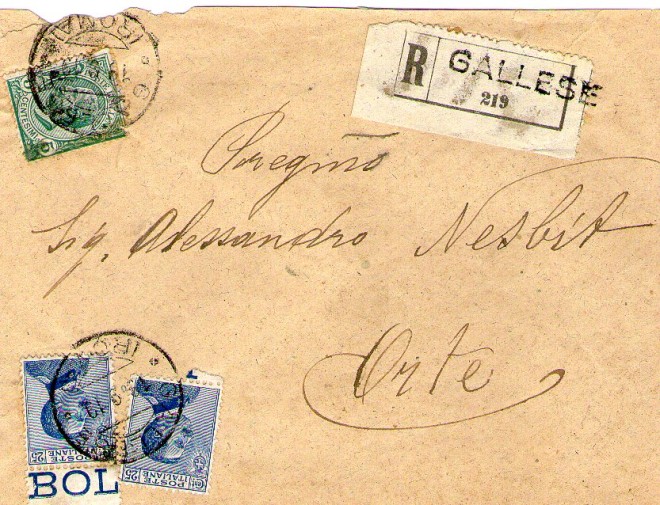 (ROMA)
CENTESIMI
R GALLESE
219
Pregmo
Sig. Alessandro Nesbit
Orte
POSTE
ITALIANE
25
POSTE
ITALIANE
25
BOL